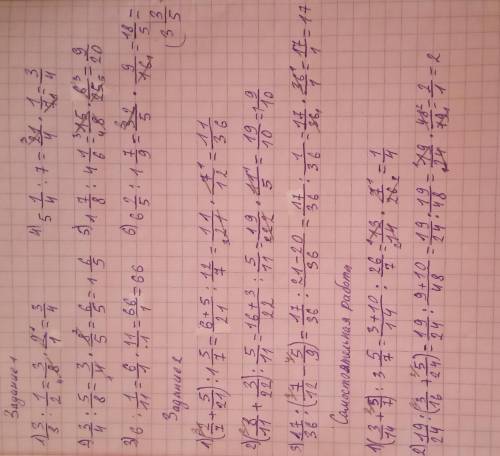 Задание 1
1) 3/8 : 1/2 = 3/8 · 2/1 = 3/4
2) 3/4 : 5/8 = 3/4 · 8/5 = 6/5 = 1 1/5
3) 6 : 1/11 = 6/1 · 11/1 = 66/1 = 66
4) 5 1/4 : 7 = 21/4 · 1/7 = 3/4
5) 1 7/8 : 4 1/6 = 15/8 · 6/25 = 9/20
6) 6 2/5 : 1 7/9 = 32/5 · 9/16 = 18/5 =
(3 3/5
Задание 2
1) (2/7 + 5/21) : 1 5/7 = (6+5)/21 : 12/7 = 11/21 · 7/12 = 11/36
2) (8/11 + 3/22) : 5/11 = (16+3)/22 : 5/11 = 19/22 · 11/5 = 19/10 = 1 9/10
3) 17/36 : (7/12 - 5/9) = 17/36 : (21-20)/36 = 17/36 : 1/36 = 17/36 · 36/1 = 17/1 = 17
Самостоятельная работа
1) (3/14 + 5/7) : 3 5/7 = (3+10)/14 : 26/7 = 13/14 · 7/26 = 1/4
2) 19/24 : (3/16 + 5/24) = 19/24 : (9+10)/48 = 19/24 : 19/48 = 19/24 · 48/19 = 2/1 = 2